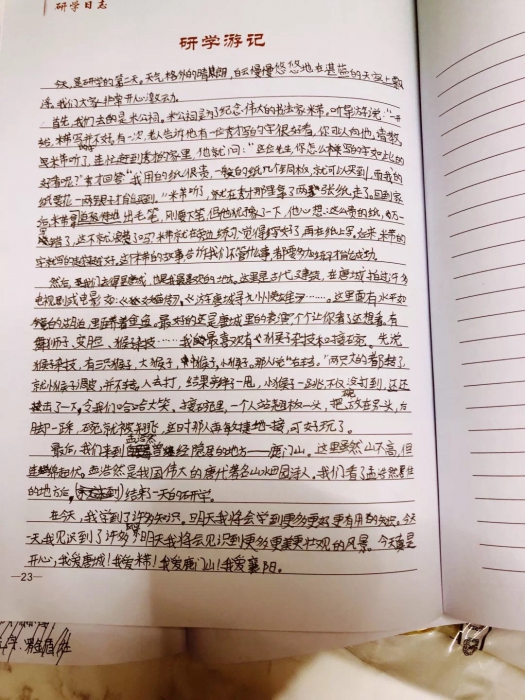 研学日志
研学游记
今天是研学的第二天。天气格外的晴朗,白云慢慢悠悠地在湛蓝的天空上飘
荡。我们大家非常开心激动。
首先,我们去的是米公祠。米公祠是为了纪念伟大的书法家米芾,听导游说:"开
始,米芾写并不好,有一次,老人告诉他有一位秀才写的字很好看,你可以向他请教,
是米芾听了,连忙赶到秀才的家里,他就问:"这位先生,你怎么样写的字如上的
好看呢?"秀才回答"我用的纸很贵,一般的纸几个铜板就可以买到,而我的
纸要花一两银子才能买到。"米芾听了,就在秀才那里拿了两张纸,走了。回到家
后,米芾拿出毛笔,刚要下笔,但他犹豫了一下,他心想:这么贵的纸,万一
写错了,这不就浪费了吗?米芾就在旁边练习,觉得好了再在纸上写。后来,米芾的
字就写的越来越好,这个米芾的故事告诉我们不管什么事都要多加练习才能成功。
然后,我们去得是唐城,也是我最喜欢的地方。这里是古代建筑,在唐城拍过许多
电视剧或电影如:《妖猫传》《九州缥缈录》……。这里面有水平如
镜的湖泊,里面养着金鱼。最好的还是唐城里的表演,个个让你看了还想看。有
舞狮子、变脸、猴子杂技……我最喜欢看猴子杂技和接碗。先说
猴子杂技,有三只猴子,大猴子,小猴子。那人说"右手。"两只大的都举了,
就小猴子调皮,并不举,人去打,结果旁一甩,小猴子一跳,不仅没打到,还
接击了一下,令我们哈哈大笑。接碗里,一个人站翘板一头,把碗放在另一头,后
脚一踩,碗就被翘飞,这时那人再敏捷地接,可好玩了。
最后,我们来到孟浩然曾经隐居的地方——鹿门山。这里虽然山不高,但
连绵起伏。孟浩然是我国伟大的唐代著名山水田园诗人,我们看了孟浩然居住
的地方后,结束一天的研学。
在今天,我学到了许多知识。明天我将会学到更多更好更有用的知识。今
天我见识到了许多,明天我将会见识到更多更美更壮观的风景。今天真是
开心,我爱唐城!我爱米芾!我爱鹿门山!我爱襄阳。
23